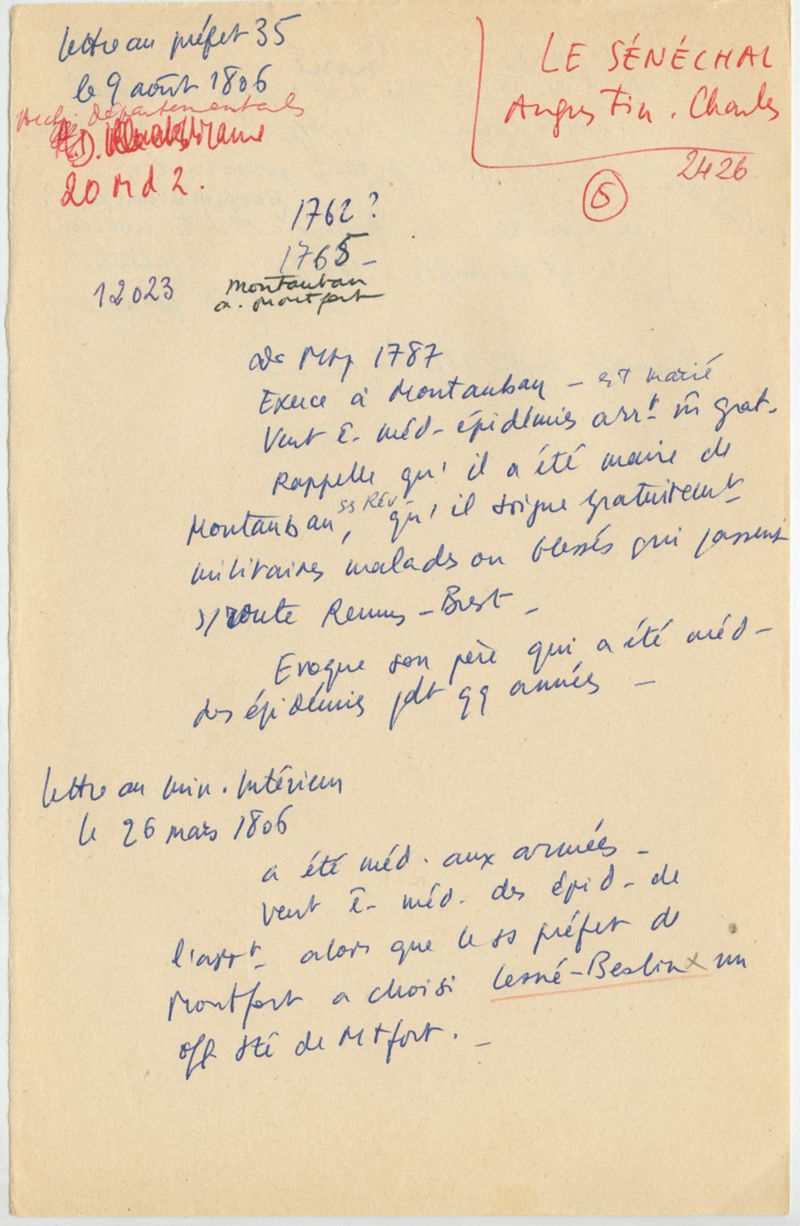 lettre au préfet 35
le 9 août 1806
Archi. départementales
20 M d 2.
LE SÉNÉCHAL
Augustin. Charles
2426
5
1762?
1765 -
12023
Montauban
a. Montfort
Dr Mtp 1787
Exerce à Montauban - est marié
Veut ê. méd - épidémies arrt m̄ grat.
Rappelle qu'il a été maire de
Montauban, ss Rév qu'il soigne gratuitement
militaires malades ou blessés qui passent
s/route Rennes - Brest -
Evoque son père qui a été méd -
des épidémies pdt qq années -
lettre au min. Intérieur
le 26 mars 1806
a été méd. aux armées -
Veut ê. méd. des épid - de
l'arrt - alors que le ss préfet de
Montfort a choisi Lesné-Beslin x un
off sté de Mtfort. -